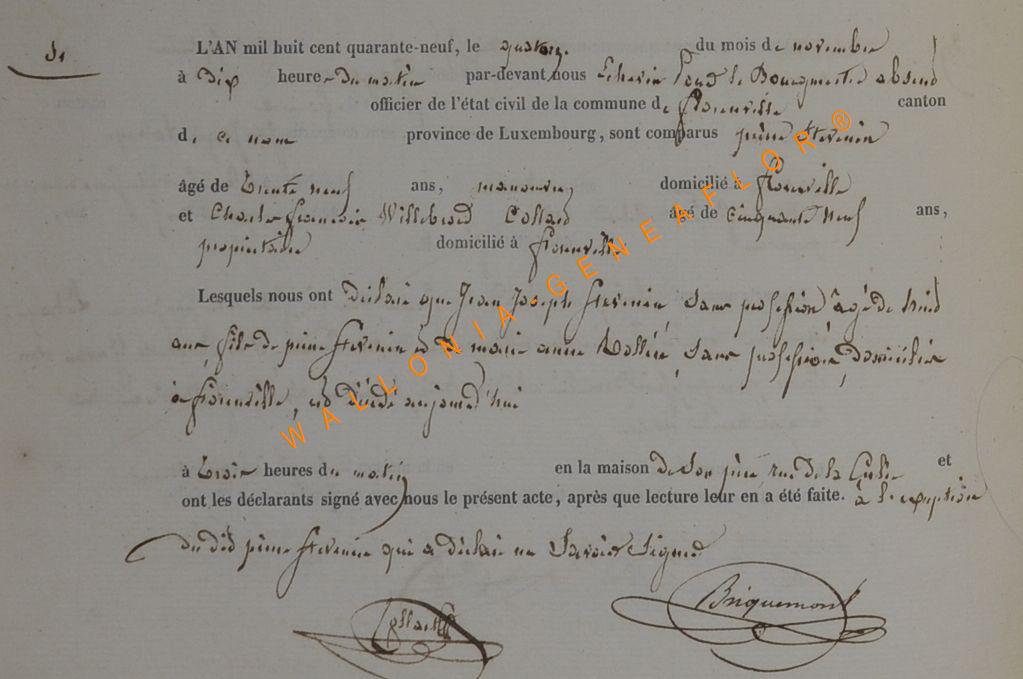 L'AN mil huit cent quarante-neuf, le quatorze du mois de novembre
à dix heures du matin par-devant nous Echevin le Bourgmestre absent
officier de l'état civil de la commune de florenville canton
de ce nom province de Luxembourg, sont comparus pierre Stevenin
âgé de trente neuf ans, manouvrier domicilié à florenville
et Charles francois Willebrord Collard âgé de cinquante neuf ans,
propriétaire domicilié à florenville
Lesquels nous ont déclaré que Jean Joseph Stevenin sans profession âgé de huit
ans, fils de pierre Stevenin et de marie anne sans profession, domicilié
à florenville, est décédé aujourd'hui
à trois heures du matin en la maison de son père rue de la et
ont les déclarants signé avec nous le présent acte, après que lecture leur en a été faite. à l'exception
du dit pierre Stevenin qui a déclaré ne savoir signer
Collard Briquemont
WALLONIA-GENEAFLOR®